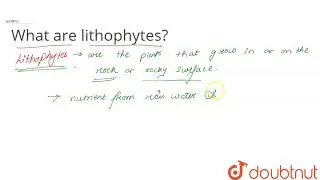 What are lithophytes?
Lithophytes → are the plants that grow in or on the
rock or rocky surface.
→ nutrient from rain water
doubtnut